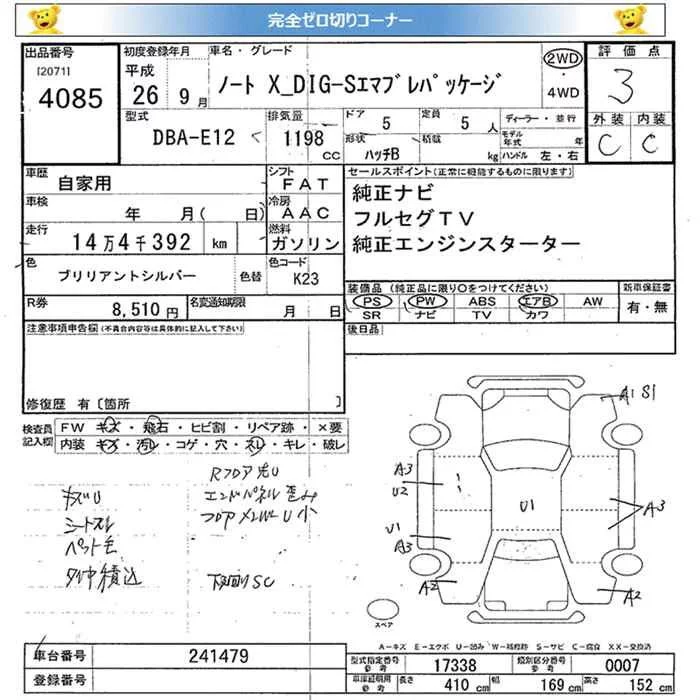 完全ゼロ切りコーナー
出品番号
[2071]
4085
初度登録年月
平成
26 9月
車名・グレード
ノート X_DIG-Sエマブレパッケージ
2WD
・
4WD
評価点
3
外装 内装
C C
型式
DBA-E12
排気量
1198
CC
ドア
5
定員
5 人
形状
ハッチB
積載
kg
ディーラー・並行
モデル年式 年
ハンドル 左・右
車歴
自家用
シフト
FAT
車検
年 月( 日)
冷房
AAC
走行
14万4千392 km
燃料
ガソリン
色
ブリリアントシルバー
色替
色コード
K23
R券
8,510円
名変通知期限
月 日
セールスポイント(正常に機能するものに限ります)
純正ナビ
フルセグTV
純正エンジンスターター
装備品(純正品に限り○をつけてください)
PS PW ABS エアB AW
SR ナビ TV カワ
新車保証書
有・無
後日品
注意事項申告欄(不具合内容等は具体的に記入して下さい)
修復歴 有〔箇所 〕
検査員
記入欄
FW キズ・飛石・ヒビ割・リペア跡・×要
内装 キズ・汚レ・コゲ・穴・スレ・キレ・破レ
Rフロア先U
エンドパネル歪み
キズU
シートスレ
ペット毛
下回りSC
A1 S1
A3
U2
U1
U1
A3
A3
A2
A2
スペア
A-キズ E-エクボ U-凹み W-補修跡 S-サビ C-腐食 XX-交換済
車台番号 241479
登録番号
型式指定番号
参考
17338
類別区分番号
参考
0007
車庫証明用
参考
長さ 410 cm 幅 169 cm 高さ 152 cm